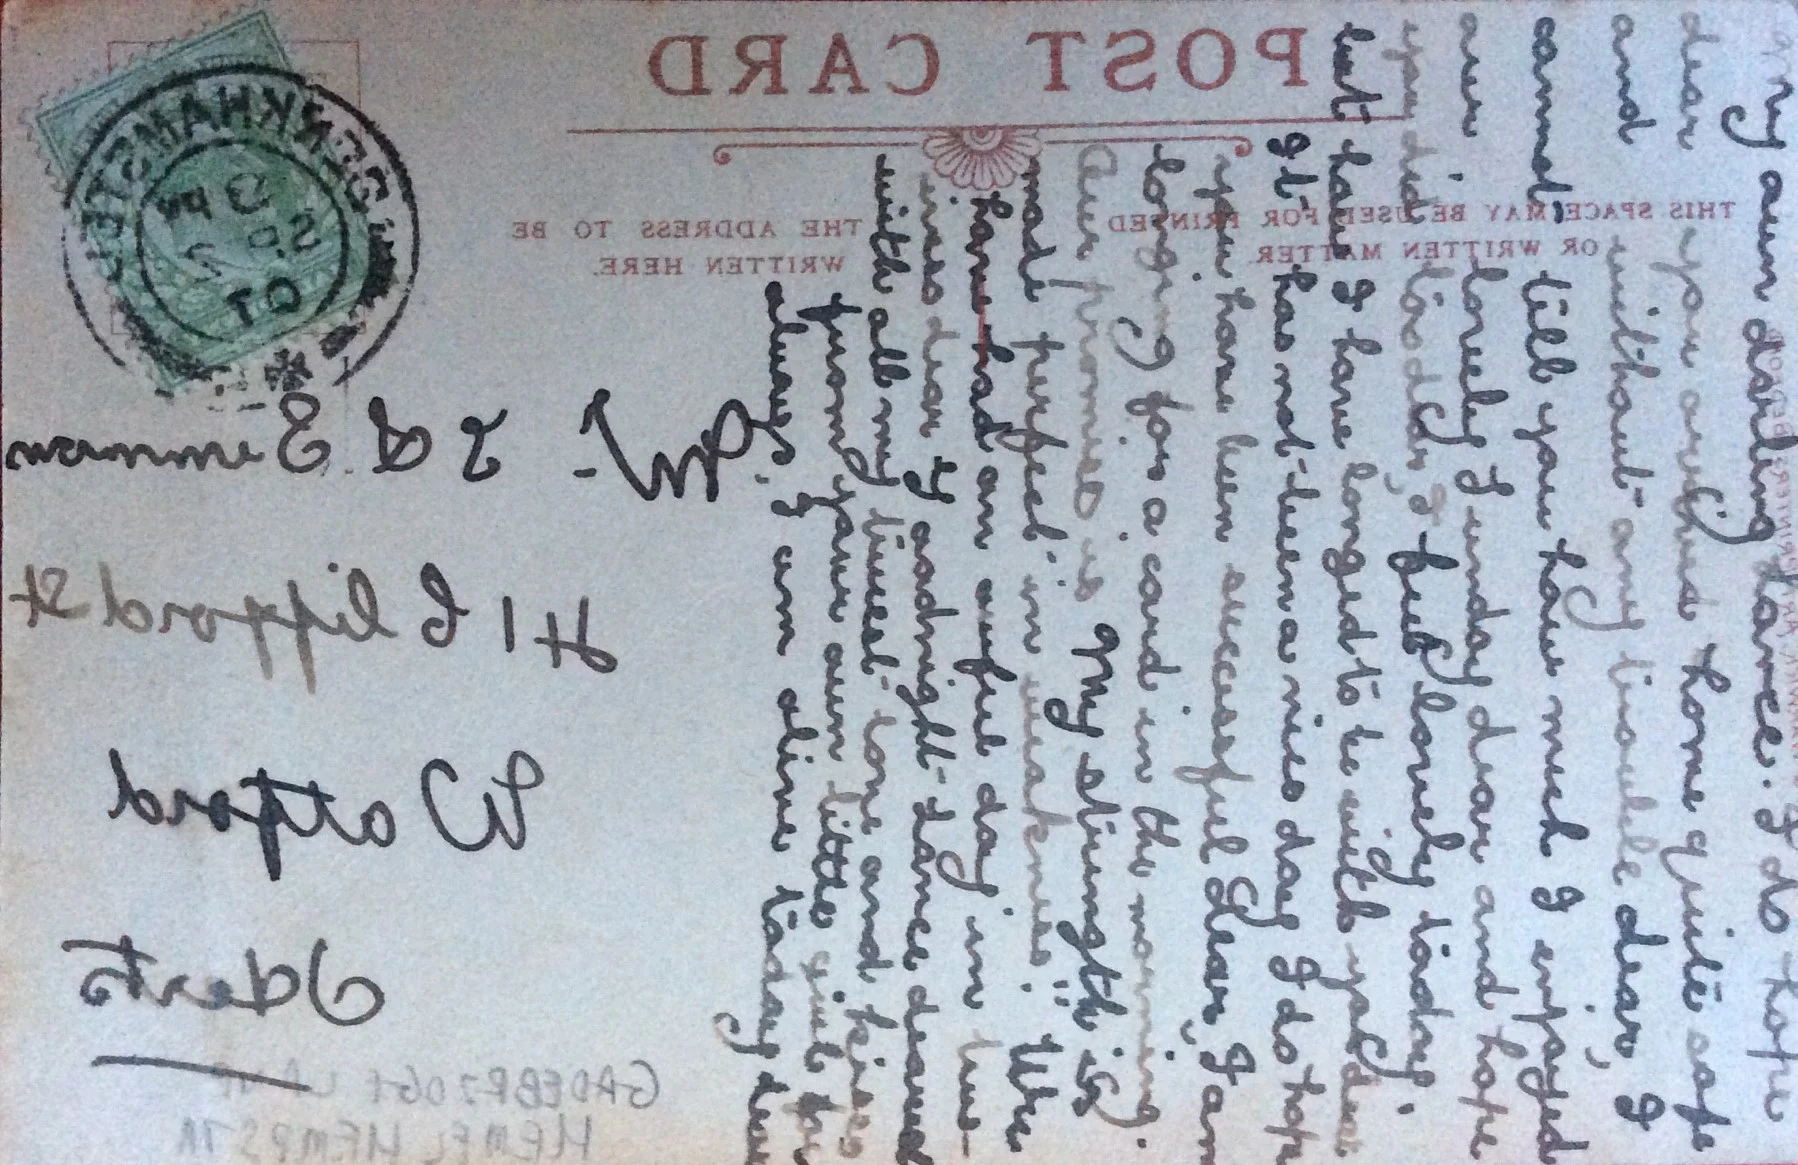 POST CARD
THIS SPACE MAY BE USED FOR PRINTED
OR WRITTEN MATTER.
THE ADDRESS TO BE
WRITTEN HERE.
BERKHAMSTED
OC 5
10
41 Clifford St
Watford
Herts
GADEBRIDGE LANE
HEMEL HEMPSTA
my own darling Horace. I do hope
dear you arrived home quite safe
and without any trouble dear, I
cannot tell you how much I enjoyed
our lovely Sunday dear and hope
you did too dear, I feel lonely today.
but how I have longed to be with you dear
It has not been a nice day I do hope
you have been successful dear, I am
longing for a card in the morning.
Our promise is "My strength is
made perfect in weakness". We
have had an awful day in the
with all my truest love and kisses
from your own little
always. I am alive today dear